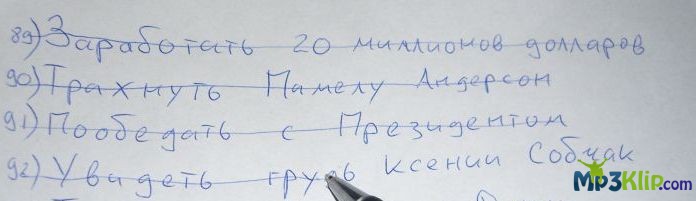 89) Заработать 20 миллионов долларов
90) Трахнуть Памелу Андерсон
91) Пообедать с Президентом
92) Увидеть грудь Ксении Собчак
Mp3Klip.com